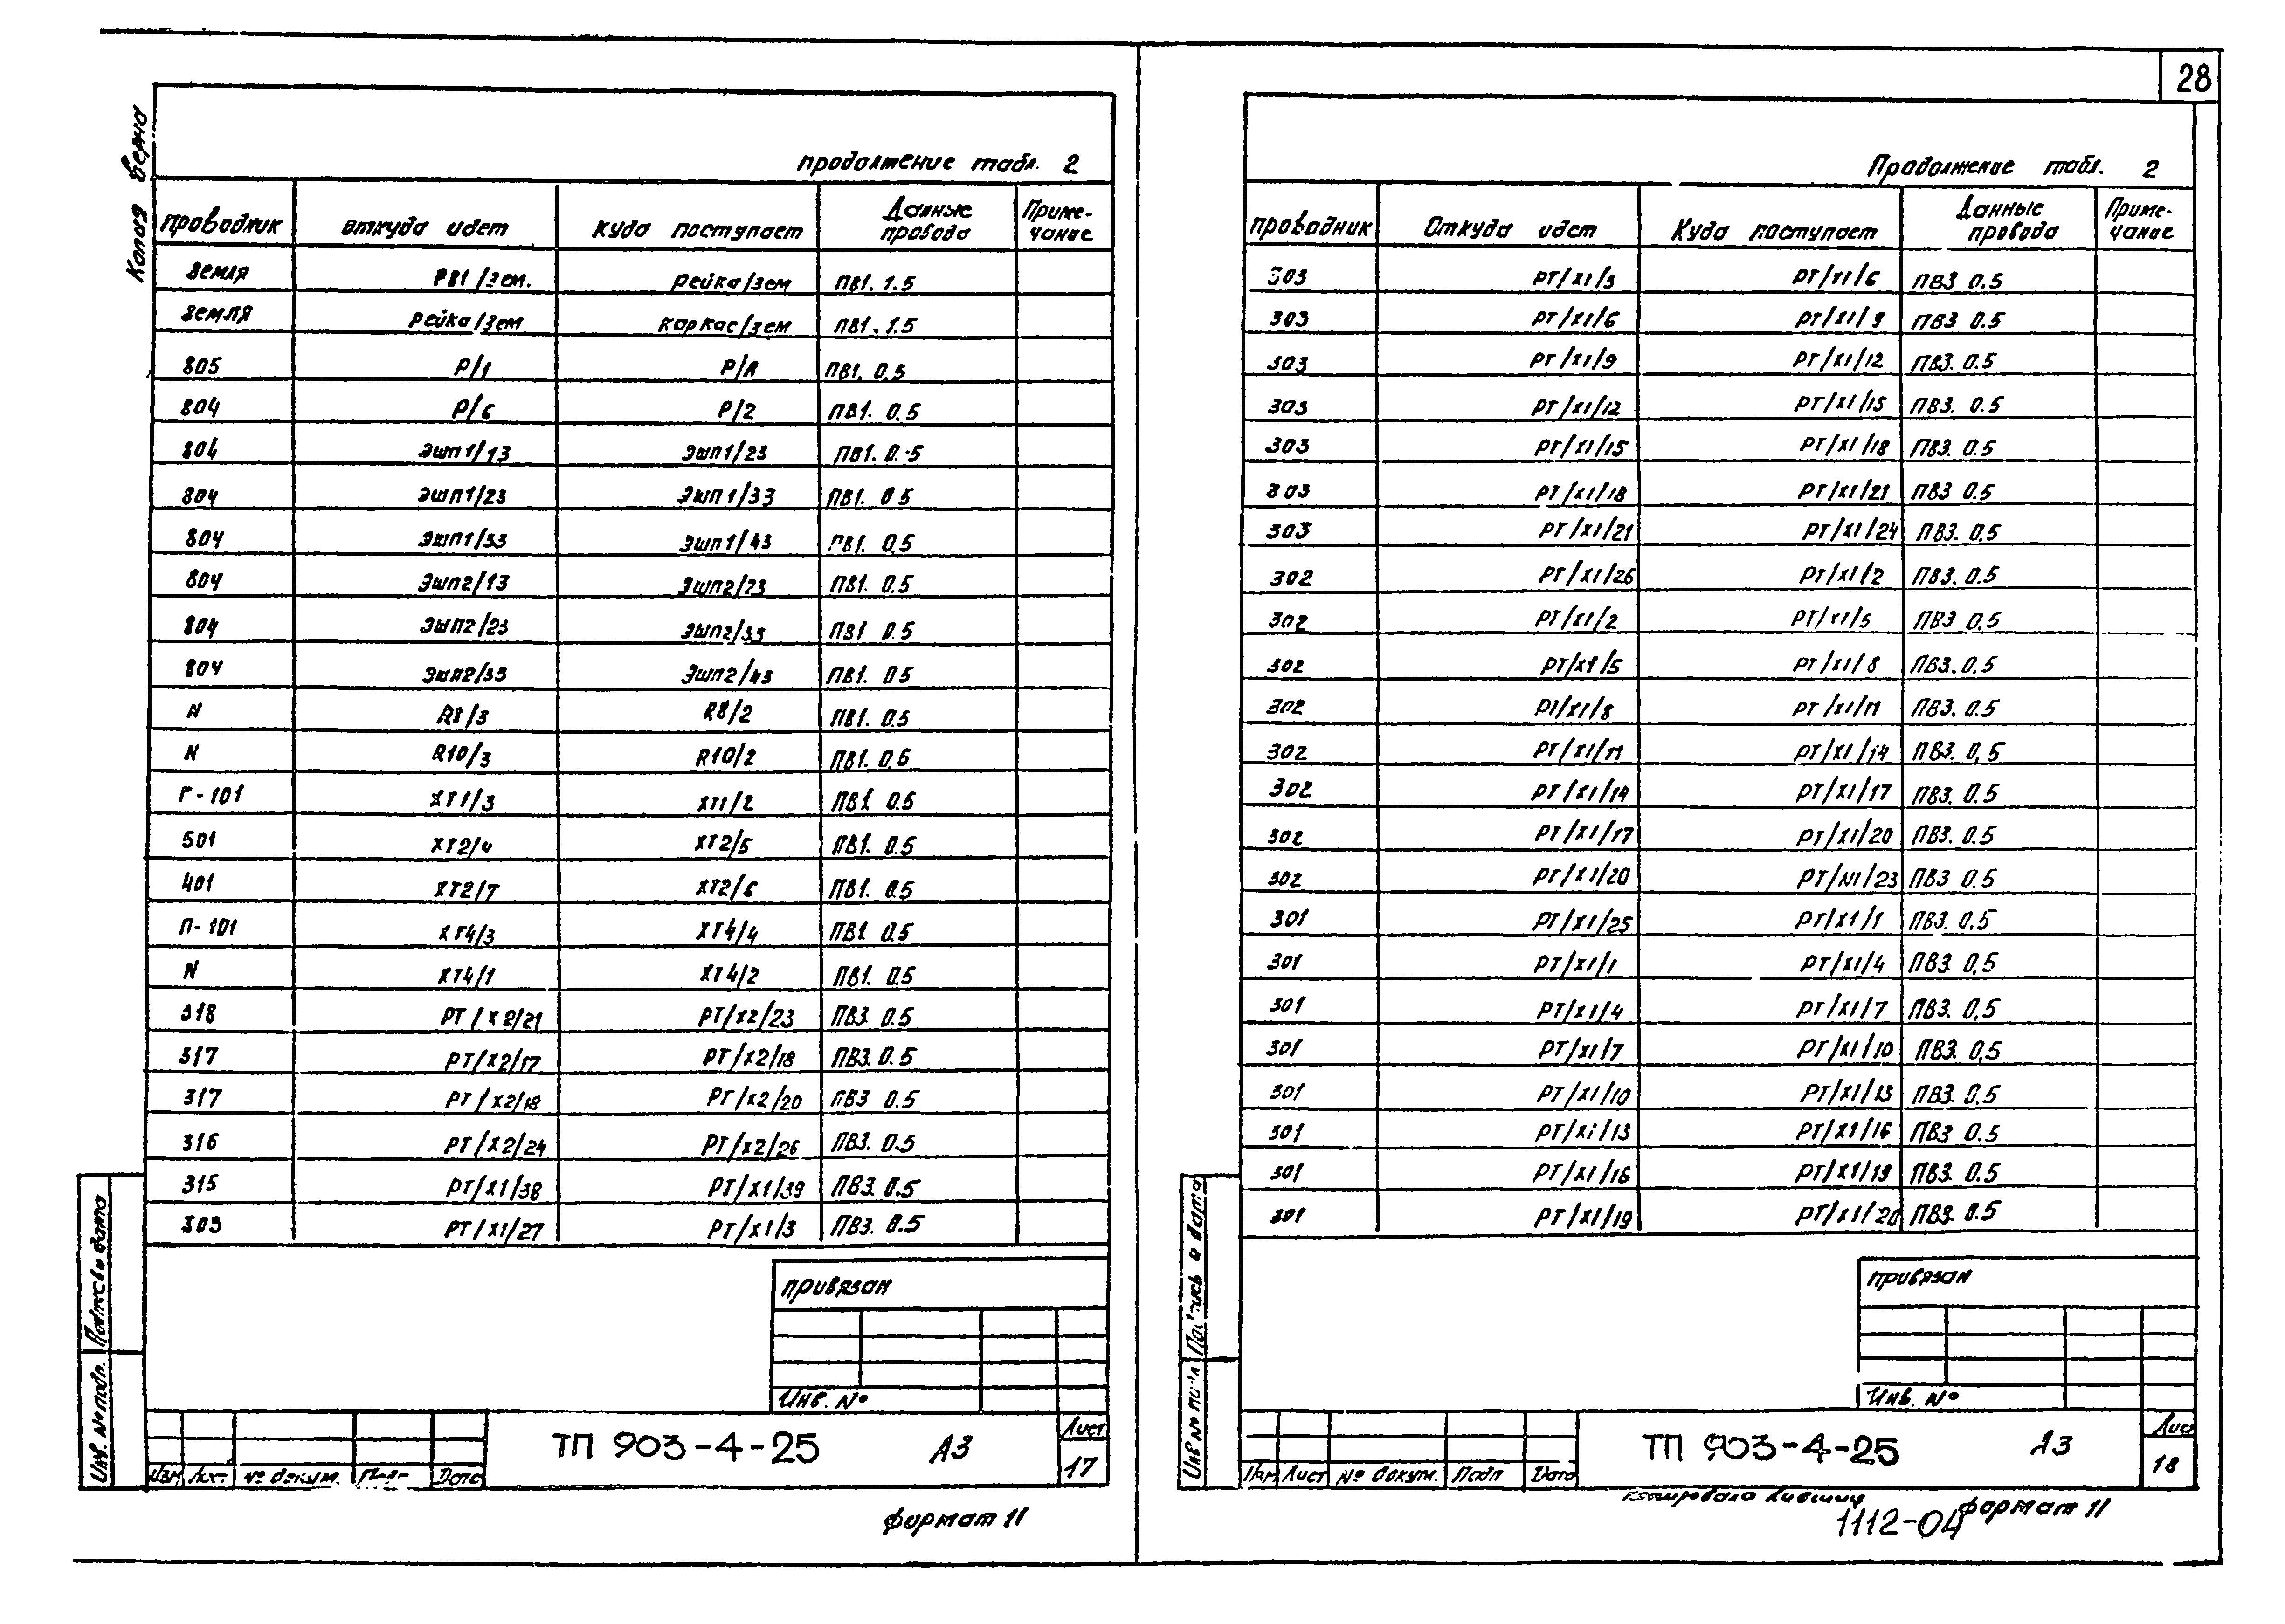 28
Копия верна
продолжение табл. 2
проводник откуда идет куда поступает Данные провода Приме-чание
земля РВ1/зем. рейка/зем ПВ1. 1.5
земля рейка/зем каркас/зем ПВ1. 1.5
805 Р/1 Р/А ПВ1. 0,5
804 Р/6 Р/2 ПВ1. 0.5
804 ЭШП1/13 ЭШП1/23 ПВ1. 0.5
804 ЭШП1/23 ЭШП1/33 ПВ1. 0.5
804 ЭШП1/33 ЭШП1/43 ПВ1. 0,5
804 ЭШП2/13 ЭШП2/23 ПВ1. 0.5
804 ЭШП2/23 ЭШП2/33 ПВ1 0.5
804 ЭШП2/33 ЭШП2/43 ПВ1. 0.5
N R8/3 R8/2 ПВ1. 0.5
N R10/3 R10/2 ПВ1. 0.5
Г-101 ХТ1/3 ХТ1/2 ПВ1. 0.5
501 ХТ2/4 ХТ2/5 ПВ1. 0.5
401 ХТ2/7 ХТ2/6 ПВ1. 0.5
П-101 ХТ4/3 ХТ4/4 ПВ1 0.5
N ХТ4/1 ХТ4/2 ПВ1. 0.5
318 РТ/Х2/21 РТ/Х2/23 ПВ3 0.5
317 РТ/Х2/17 РТ/Х2/18 ПВ3. 0.5
317 РТ/Х2/18 РТ/Х2/20 ПВ3 0.5
316 РТ/Х2/24 РТ/Х2/26 ПВ3. 0.5
315 РТ/Х1/38 РТ/Х1/39 ПВ3. 0.5
303 РТ/Х1/27 РТ/Х1/3 ПВ3. 0.5
привязан
Инв. №
Изм Лист № докум. Подп Дата
ТП 903-4-25 А3
Лист
17
Инв. № подл. Подпись и дата
формат 11
Продолжение табл. 2
проводник Откуда идет Куда поступает Данные провода Приме-чание
303 РТ/Х1/3 РТ/Х1/6 ПВ3 0.5
303 РТ/Х1/6 РТ/Х1/9 ПВ3 0.5
303 РТ/Х1/9 РТ/Х1/12 ПВ3. 0.5
303 РТ/Х1/12 РТ/Х1/15 ПВ3. 0.5
303 РТ/Х1/15 РТ/Х1/18 ПВ3. 0.5
303 РТ/Х1/18 РТ/Х1/21 ПВ3 0.5
303 РТ/Х1/21 РТ/Х1/24 ПВ3. 0,5
302 РТ/Х1/26 РТ/Х1/2 ПВ3. 0.5
302 РТ/Х1/2 РТ/Х1/5 ПВ3 0,5
302 РТ/Х1/5 РТ/Х1/8 ПВ3. 0,5
302 РТ/Х1/8 РТ/Х1/11 ПВ3. 0.5
302 РТ/Х1/11 РТ/Х1/14 ПВ3. 0,5
302 РТ/Х1/14 РТ/Х1/17 ПВ3. 0.5
302 РТ/Х1/17 РТ/Х1/20 ПВ3. 0.5
302 РТ/Х1/20 РТ/Х1/23 ПВ3 0.5
301 РТ/Х1/25 РТ/Х1/1 ПВ3. 0.5
301 РТ/Х1/1 РТ/Х1/4 ПВ3 0,5
301 РТ/Х1/4 РТ/Х1/7 ПВ3. 0,5
301 РТ/Х1/7 РТ/Х1/10 ПВ3. 0,5
301 РТ/Х1/10 РТ/Х1/13 ПВ3. 0.5
301 РТ/Х1/13 РТ/Х1/16 ПВ3 0.5
301 РТ/Х1/16 РТ/Х1/19 ПВ3. 0.5
301 РТ/Х1/19 РТ/Х1/20 ПВ3. 0.5
привязан
Инв. №
Изм Лист № докум. Подп Дата
ТП 903-4-25 А3
Лист
18
Инв № подл Подпись и дата
копировала
формат 11
1112-04